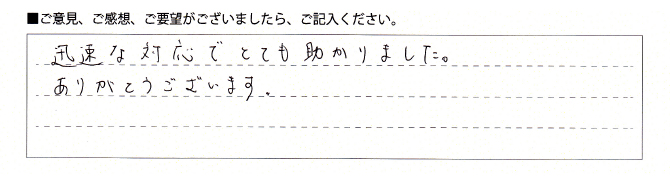 ■ご意見、ご感想、ご要望がございましたら、ご記入ください。
迅速な対応でとても助かりました。
ありがとうございます。